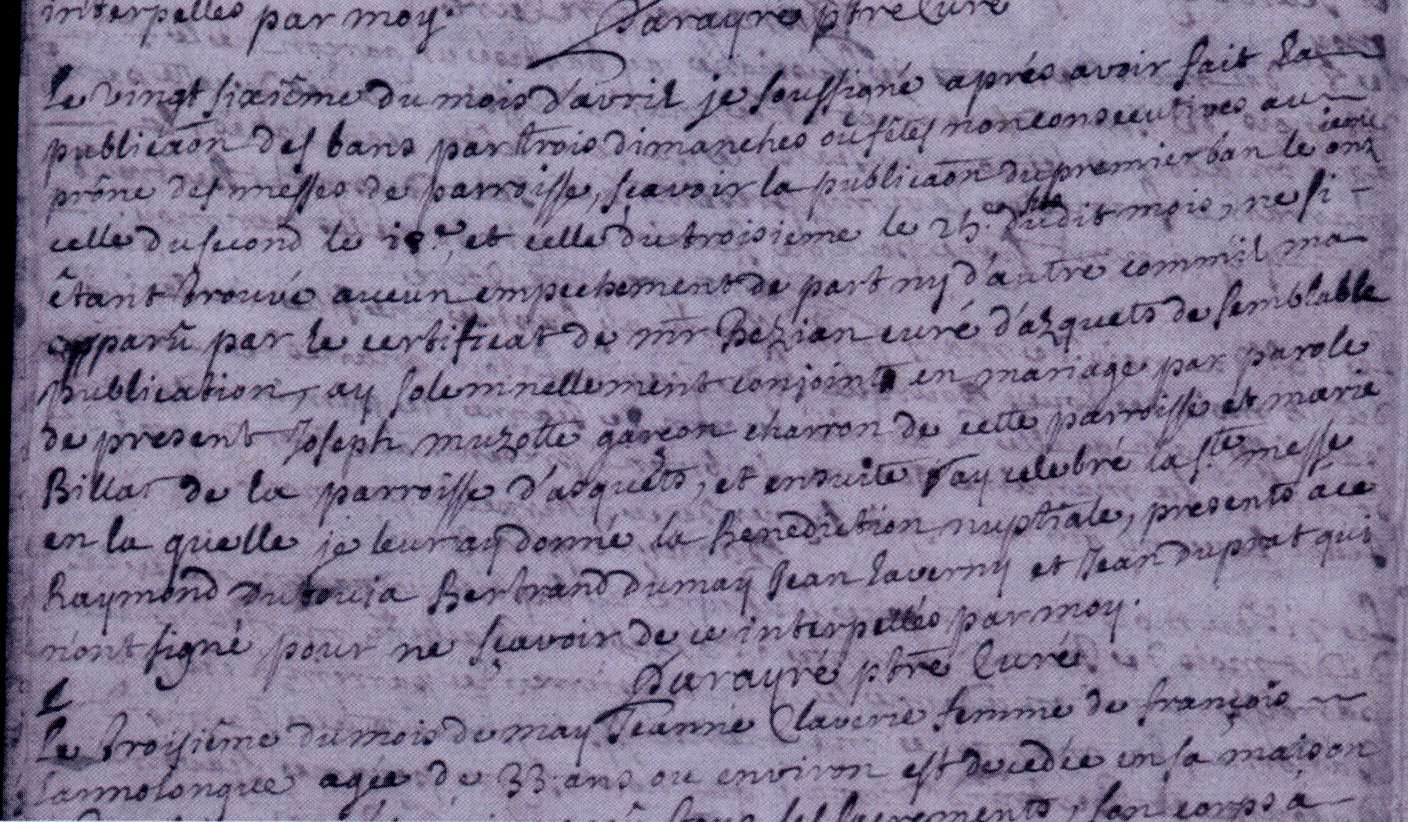 interpellés par moy. Darayré ptre Curé
Le vingt sixiême du mois d'avril je soussigné aprés avoir fait la
publicaôn des bans par trois dimanches où fêtes non consecutives au
prône des messes de parroisse, sçavoir la publicaôn du premier ban le onzieme
celle du second le 18.e et celle du troisieme le 25.e dudit mois, ne si
êtant trouvé aucun empechement de part ny d'autre comm'il ma
apparû par le certificat de mr Bezian curé d'azquets de semblable
publication, ay solemnellement conjoint en mariage par parole
de present Joseph muzotte garçon charron de cette parroisse et marie
Billac de la parroisse d'asquets, et ensuite j'ay celebré la ste messe
en la quelle je leur ay donné la Benediction nuptiale, presents à ce
Raymond Bertrand dumay Jean Laverny et Jean duprat qui
n'ont signé pour ne sçavoir de ce interpellés par moy.
Darayré ptrê Curé.
Le troisiême du mois de may Jeanne Claverie femme de françois
Lannolongue agée de 33 ans ou environ est decedée en sa maison
sacrements, son corps à